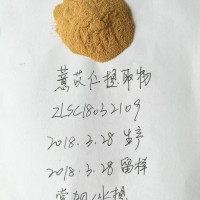 薏苡仁提取物
ZLSC18032109
2018.3.28 生产
2018.3.28 留样
常规/水提